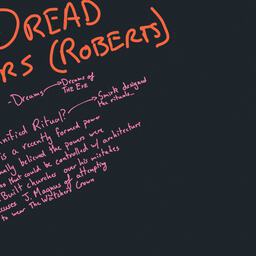 DREAD
RS (ROBERTS)
-Dreams → Dreams of
THE EYE
nified Ritual? → Smirk designed
the rituals
is a recently formed power
nally believed the powers were
that could be controlled w/ architecture
Built churches over his mistakes
ccuses J. Magnus of attempting
to wear The Watcher's Crown